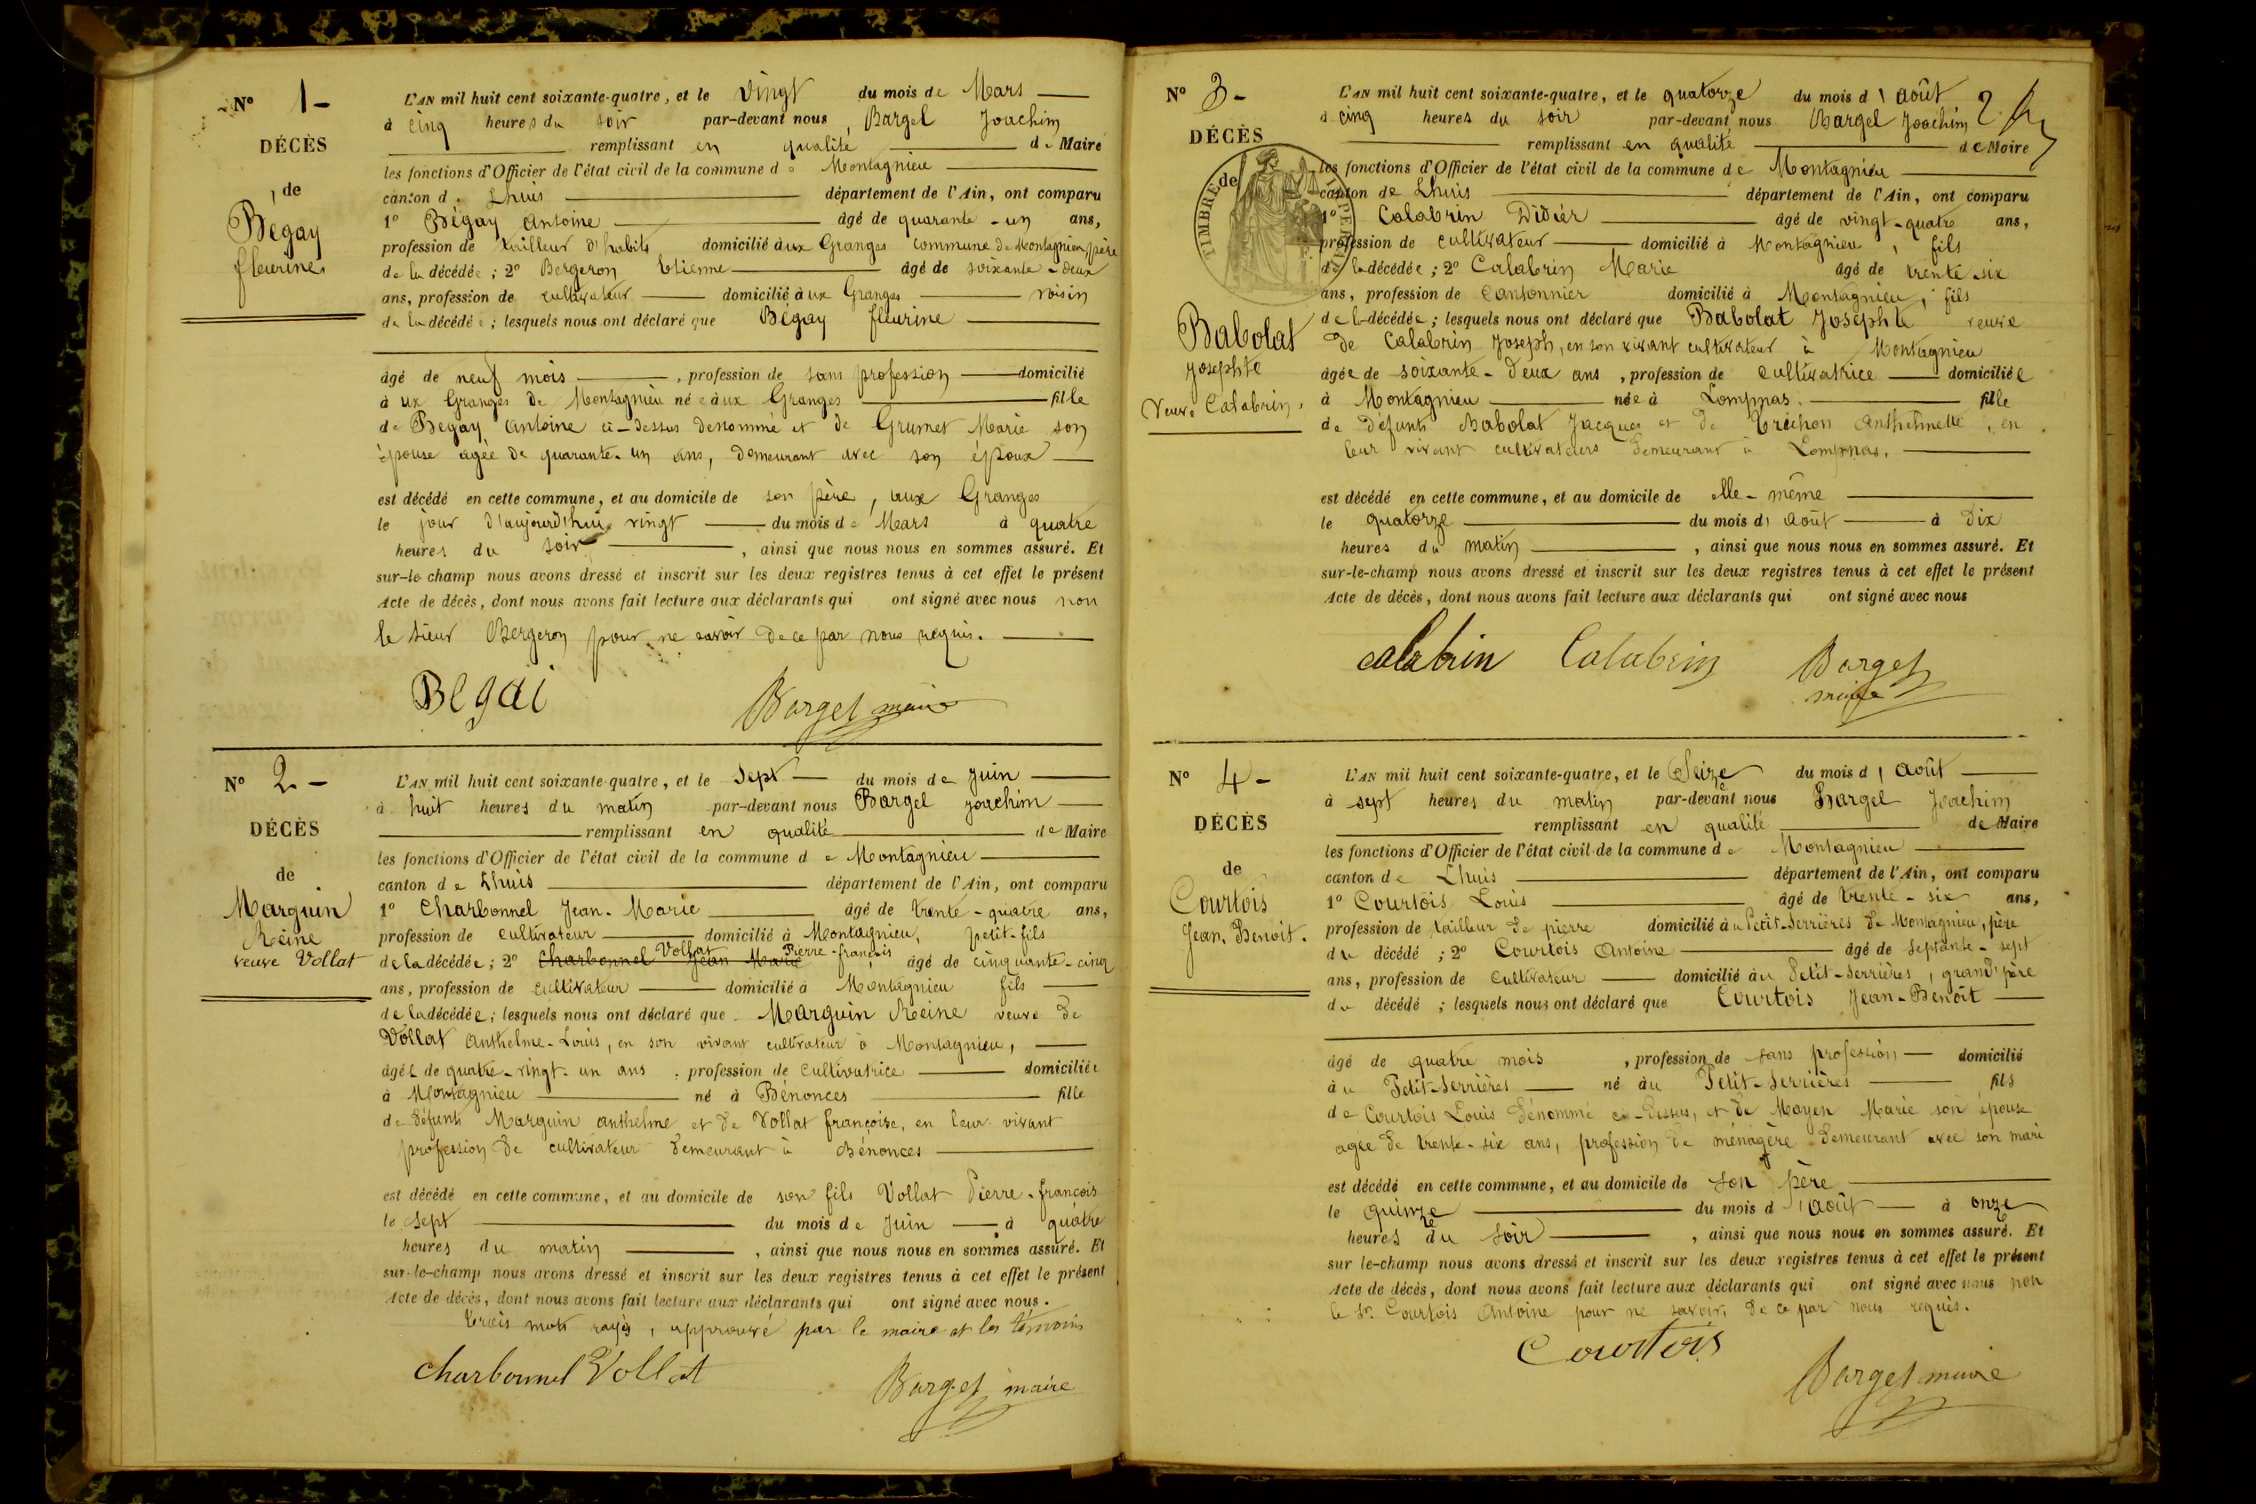 N° 1 -
DÉCÈS
de
Bégay
fleurine
L'AN mil huit cent soixante-quatre, et le vingt du mois de Mars
à cinq heures du soir par-devant nous, Barget Joachim
remplissant en qualité de Maire
les fonctions d'Officier de l'état civil de la commune de Montagnieu
canton de Lhuis département de l'Ain, ont comparu
1° Bégay antoine âgé de quarante-un ans,
profession de tailleur d'habits domicilié aux Granges commune de Montagnieu, père
de la décédée ; 2° Bergeron Etienne âgé de soixante-deux
ans, profession de cultivateur domicilié aux Granges voisin
de la décédée ; lesquels nous ont déclaré que Bégay fleurine
âgé de neuf mois, profession de sans profession domicilié
à ux Granges de Montagnieu née aux Granges fille
de Begay antoine ci-dessus dénommé et de Grumet Marie son
épouse agée de quarante-un ans, demeurant avec son époux
est décédé en cette commune, et au domicile de son père, aux Granges
le jour d'aujourd'hui vingt du mois de Mars à quatre
heures du soir, ainsi que nous nous en sommes assuré. Et
sur-le-champ nous avons dressé et inscrit sur les deux registres tenus à cet effet le présent
Acte de décès, dont nous avons fait lecture aux déclarants qui ont signé avec nous non
le sieur Bergeron pour ne savoir de ce par nous requis.
Begai Barget maire
N° 2 -
DÉCÈS
de
Marguin
Reine
veuve Vollat
L'AN mil huit cent soixante-quatre, et le sept du mois de Juin
à huit heures du matin par-devant nous Barget Joachim
remplissant en qualité de Maire
les fonctions d'Officier de l'état civil de la commune de Montagnieu
canton de Lhuis département de l'Ain, ont comparu
1° Charbonnel Jean-Marie âgé de trente-quatre ans,
profession de cultivateur domicilié à Montagnieu, petit-fils
de la décédée ; 2° Charbonnel Jean Marie Vollat Pierre-françois âgé de cinquante-cinq
ans, profession de cultivateur domicilié à Montagnieu fils
de la décédée ; lesquels nous ont déclaré que Marguin Reine veuve de
Vollat Anthelme-Louis, en son vivant cultivateur à Montagnieu,
âgée de quatre-vingt-un ans, profession de cultivatrice domiciliée
à Montagnieu né à Bénonces fille
de défunts Marguin anthelme et de Vollat françoise, en leur vivant
profession de cultivateur demeurant à Bénonces
est décédé en cette commune, et au domicile de son fils Vollat Pierre-françois
le sept du mois de Juin à quatre
heures du matin, ainsi que nous nous en sommes assuré. Et
sur-le-champ nous avons dressé et inscrit sur les deux registres tenus à cet effet le présent
Acte de décès, dont nous avons fait lecture aux déclarants qui ont signé avec nous.
Trois mots rayés, approuvé par le maire et les témoins
Charbonnel Vollat Barget maire
N° 3 -
DÉCÈS
de
TIMBRE IMPERIAL
Babolat
Josephte
Veuve Calabrin.
L'AN mil huit cent soixante-quatre, et le quatorze du mois d'août 2
à cinq heures du soir par-devant nous Barget Joachim
remplissant en qualité de Maire
les fonctions d'Officier de l'état civil de la commune de Montagnieu
canton de Lhuis département de l'Ain, ont comparu
1° Calabrin Didier âgé de vingt-quatre ans,
profession de cultivateur domicilié à Montagnieu, fils
de la décédée ; 2° Calabrin Marie âgé de trente-six
ans, profession de Cantonnier domicilié à Montagnieu, fils
de la décédée ; lesquels nous ont déclaré que Babolat Josephte veuve
de Calabrin Joseph, en son vivant cultivateur à Montagnieu
âgée de soixante-deux ans, profession de cultivatrice domiciliée
à Montagnieu née à Lompnas. fille
de défunts Babolat Jacques et de Tréchon Anthelmette, en
leur vivant cultivateurs demeurant à Lompnas.
est décédé en cette commune, et au domicile de elle-même
le quatorze du mois d'août à dix
heures du matin, ainsi que nous nous en sommes assuré. Et
sur-le-champ nous avons dressé et inscrit sur les deux registres tenus à cet effet le présent
Acte de décès, dont nous avons fait lecture aux déclarants qui ont signé avec nous
calabrin Calabrin Barget
maire
N° 4 -
DÉCÈS
de
Courtois
Jean, Benoit.
L'AN mil huit cent soixante-quatre, et le Seize du mois d'août
à sept heures du matin par-devant nous Barget Joachim
remplissant en qualité de Maire
les fonctions d'Officier de l'état civil de la commune de Montagnieu
canton de Lhuis département de l'Ain, ont comparu
1° Courtois Louis âgé de trente-six ans,
profession de tailleur de pierre domicilié à u Petit-Serrières de Montagnieu, père
du décédé ; 2° Courtois Antoine âgé de septante-sept
ans, profession de cultivateur domicilié au Petit-Serrières, grand père
du décédé ; lesquels nous ont déclaré que Courtois Jean-Benoît
âgé de quatre mois, profession de sans profession domicilié
à u Petit-Serrières né au Petit-Serrières fils
de Courtois Louis dénommé ci-dessus, et de Moyen Marie son épouse
agée de trente-six ans, profession de ménagère demeurant avec son mari
est décédé en cette commune, et au domicile de son père
le quinze du mois d'août à onze
heures du soir, ainsi que nous nous en sommes assuré. Et
sur le-champ nous avons dressé et inscrit sur les deux registres tenus à cet effet le présent
Acte de décès, dont nous avons fait lecture aux déclarants qui ont signé avec nous non
le Sr. Courtois Antoine pour ne savoir, de ce par nous requis.
Courtois
Barget maire